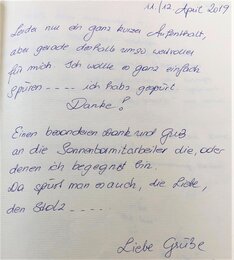 11/12 April 2019
Leider nur ein ganz kurzer Aufenthalt,
aber gerade deshalb umso wertvoller
für mich. Ich wollte es ganz einfach
spüren ---- ich hab's gespürt.
Danke!
Einen besonderen Dank und Gruß
an die Sonnentormitarbeiter die, oder
denen ich begegnet bin.
Da spürt man es auch, die Liebe,
den Stolz -----.
Liebe Grüße